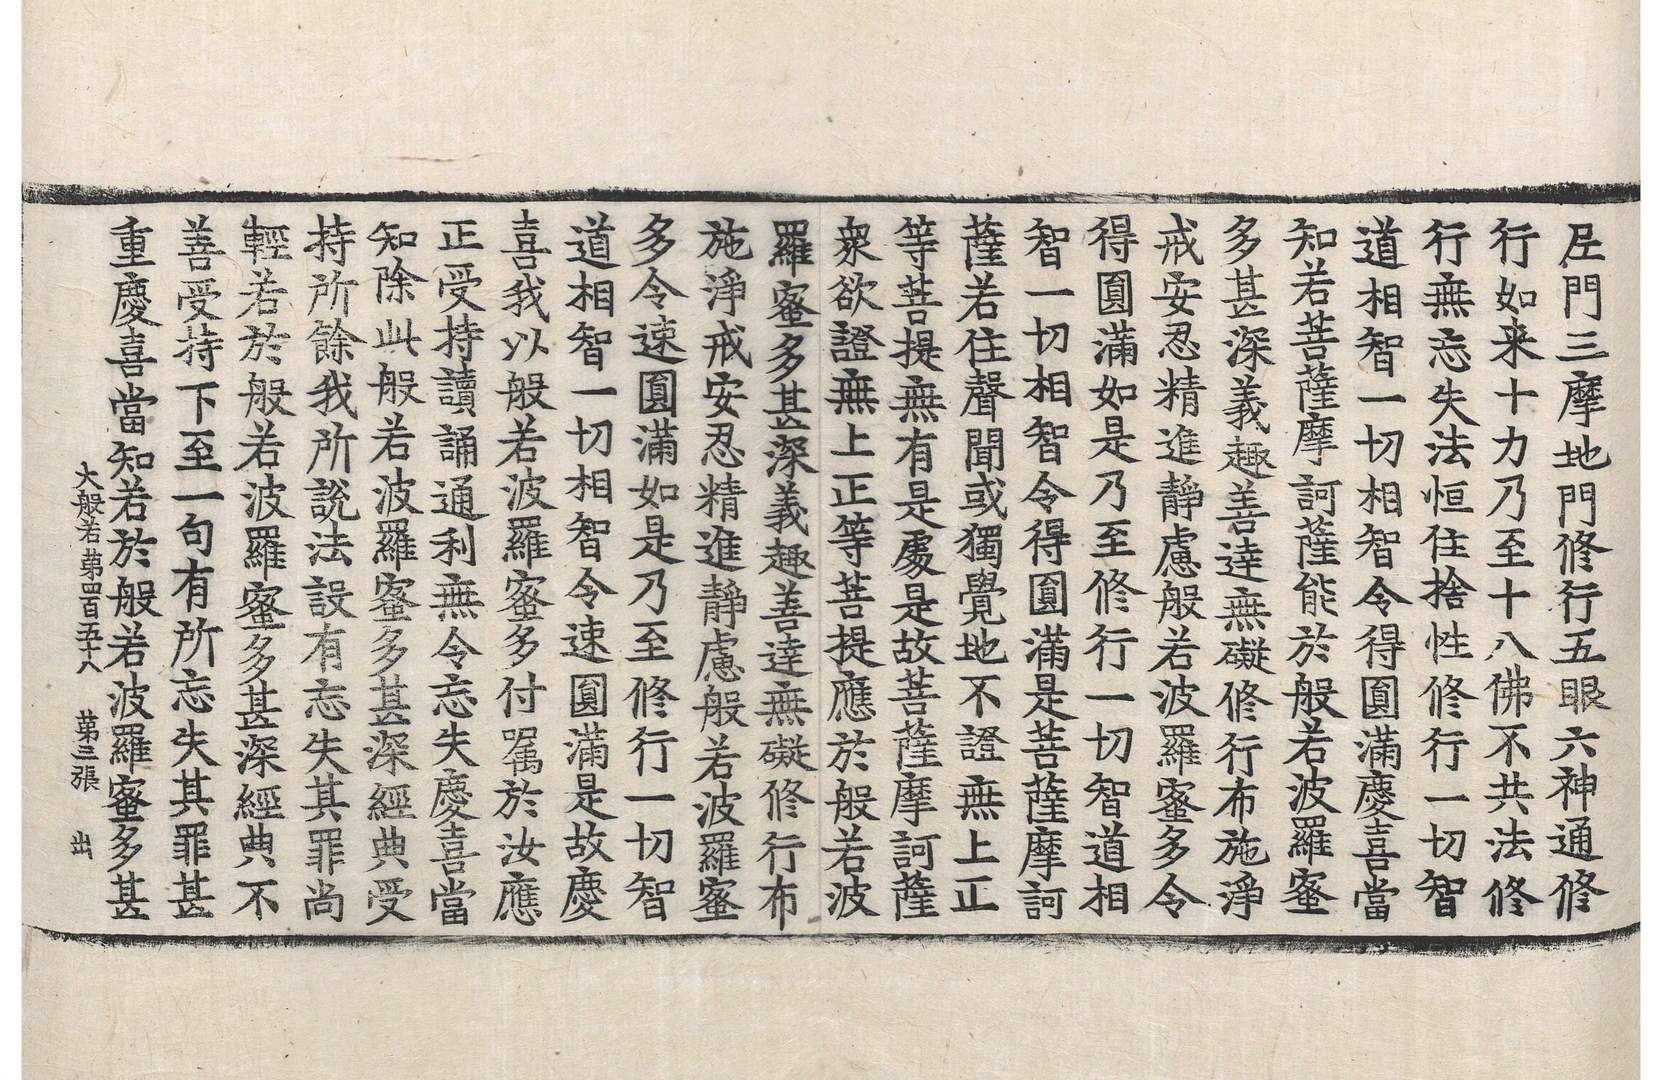 尼門三摩地門修行五眼六神通修
行如来十力乃至十八佛不共法修
行無忘失法恒住捨性修行一切智
道相智一切相智令得圓滿慶喜當
知若菩薩摩訶薩能於般若波羅蜜
多甚深義趣善達無礙修行布施淨
戒安忍精進靜慮般若波羅蜜多令
得圓滿如是乃至修行一切智道相
智一切相智令得圓滿是菩薩摩訶
薩若住聲聞或獨覺地不證無上正
等菩提無有是處是故菩薩摩訶薩
衆欲證無上正等菩提應於般若波
羅蜜多甚深義趣善達無礙修行布
施淨戒安忍精進靜慮般若波羅蜜
多令速圓滿如是乃至修行一切智
道相智一切相智令速圓滿是故慶
喜我以般若波羅蜜多付囑於汝應
正受持讀誦通利無令忘失慶喜當
知除此般若波羅蜜多甚深經典受
持所餘我所說法設有忘失其罪尚
輕若於般若波羅蜜多甚深經典不
善受持下至一句有所忘失其罪甚
重慶喜當知若於般若波羅蜜多甚
大般若第四百五十八 第三張 出